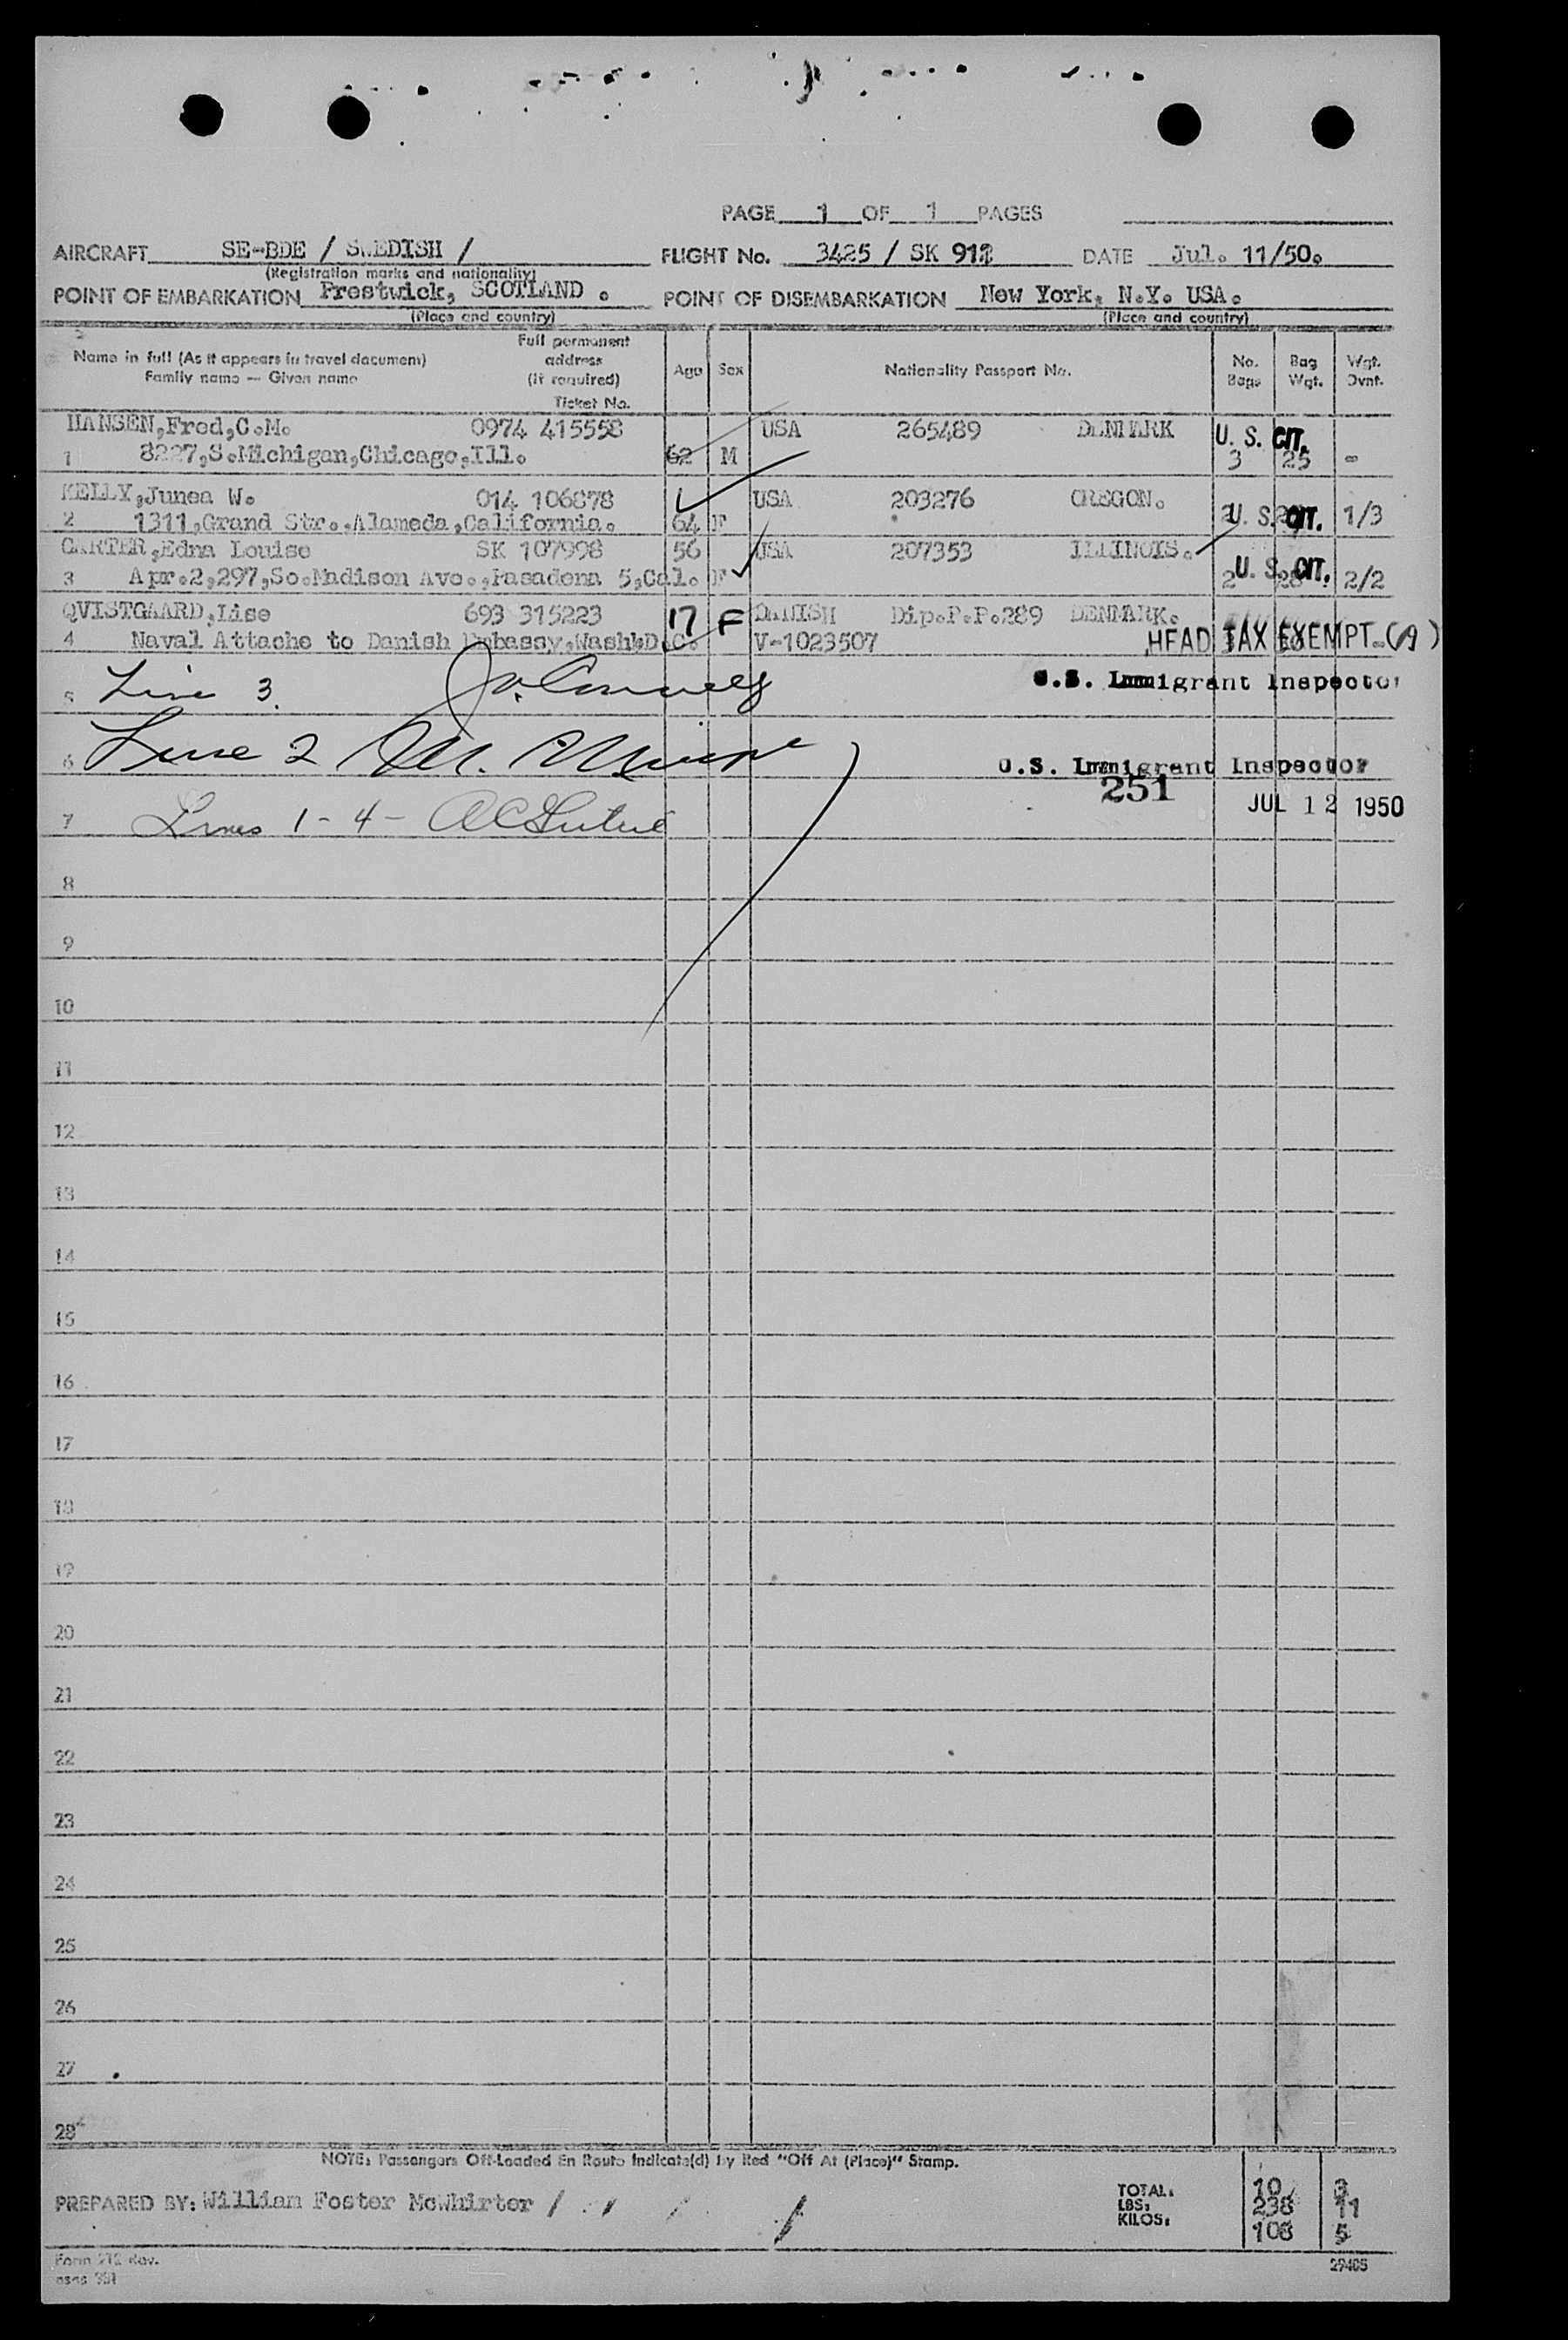 PAGE 1 OF 1 PAGES
AIRCRAFT SE-BDE / SWEDISH / FLIGHT No. 3425 / SK 912 DATE Jul. 11/50.
(Registration marks and nationality)
POINT OF EMBARKATION Prestwick, SCOTLAND . POINT OF DISEMBARKATION New York, N.Y. USA.
(Place and country) (Place and country)
Name in full (As it appears in travel document) Family name — Given name Full permanent address (if required) Ticket No. Age Sex Nationality Passport No. No. Bags Bag Wgt. Wgt. Ovnt.
HANSEN,Fred,C.M. 0974 415558 USA 265489 DENMARK U. S. CIT.
1 8227,S.Michigan,Chicago,Ill. 62 M 3 25 -
KELLY,Junea W. 014 106878 USA 203276 OREGON.
2 1311,Grand Str.,Alameda,California. 64 F 2 U. S. CIT. 1/3
CARTER,Edna Louise SK 107998 56 USA 207353 ILLINOIS.
3 Apr.2,297,So.Madison Ave.,Pasadena 5,Cal. F 2 U. S. CIT. 2/2
QVISTGAARD,Lise 693 315223 17 F DANISH Dip.P.P.289 DENMARK.
4 Naval Attache to Danish Embassy,Wash.D.C. V-1023507 HEAD TAX EXEMPT-(A)
5 Line 3. U.S. Immigrant Inspector
6 Line 2 U.S. Immigrant Inspector
251
7 Lines 1-4- JUL 12 1950
8
9
10
11
12
13
14
15
16
17
18
19
20
21
22
23
24
25
26
27
28
NOTE: Passengers Off-Loaded En Route Indicate(d) by Red "Off At (Place)" Stamp.
PREPARED BY: William Foster McWhirter /
TOTAL: 10 3
LBS: 238 11
KILOS: 108 5
Form 212 Rev.
29405